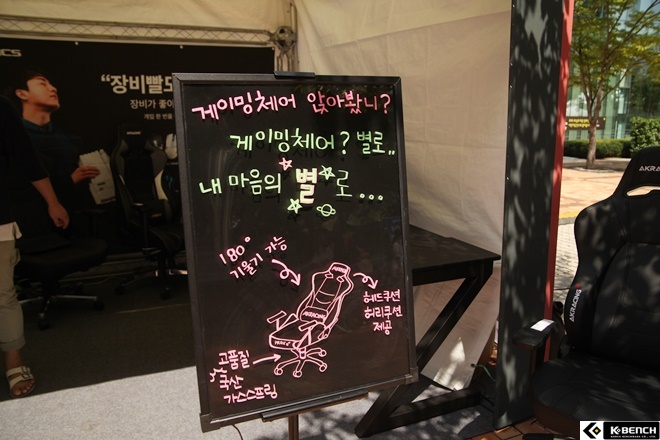 게이밍체어 앉아봤니?
게이밍체어? 별로..
내 마음의 별로...
180°
기울기 가능
헤드쿠션
허리쿠션
제공
고품질
국산
가스스프링
AKRACING
"장비빨도
장비가 좋아
AKRA
K-BENCH